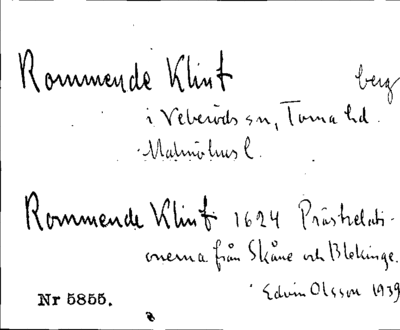 Rommende Klint berg
i Veberöds sn, Torna hd.
Malmöhus l.
Rommende Klint 1624 Prästrelati-
onerna från Skåne och Blekinge.
Edvin Olsson 1939
Nr 5855.